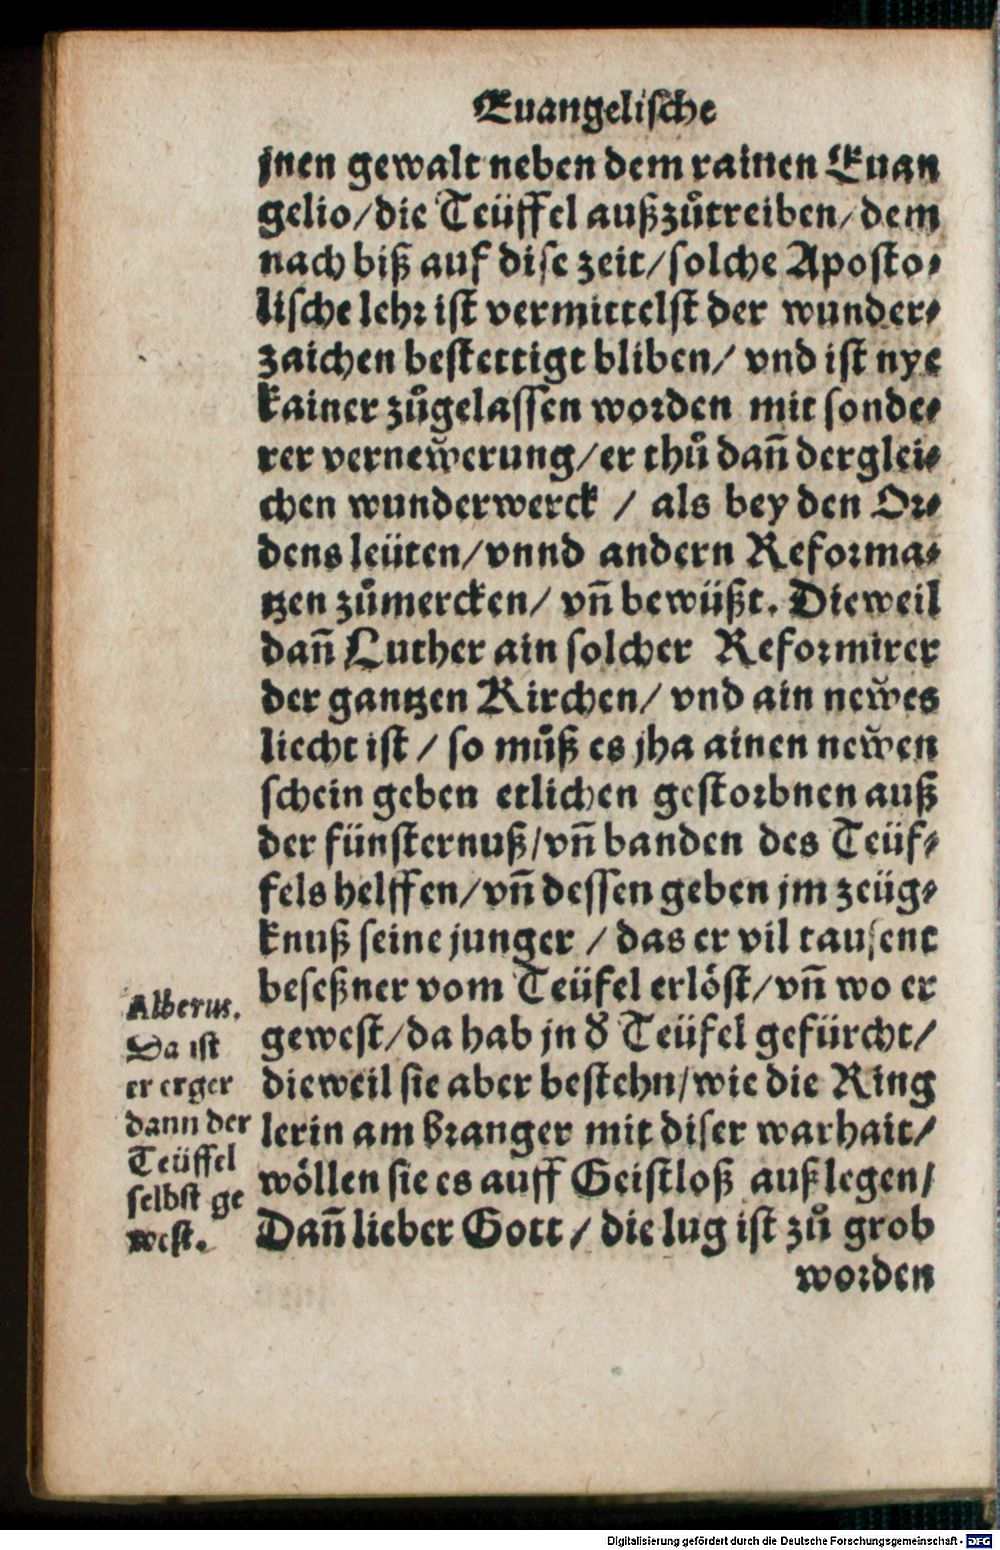 Euangelische
jnen gewalt neben dem rainen Euan
gelio/die Teüffel außzůtreiben/dem
nach biß auf dise zeit/solche Aposto⸗
lische lehr ist vermittelst der wunder⸗
zaichen bestettigt bliben/ vnd ist nye
kainer zůgelassen worden mit sonde⸗
rer vernew̌erung/er thů dañ derglei⸗
chen wunderwerck / als bey den Or⸗
dens leüten/vnnd andern Reforma⸗
tzen zůmercken/ vñ bewüßt. Dieweil
dañ Luther ain solcher Reformirer
der gantzen Kirchen/ vnd ain new̌es
liecht ist / so můß es jha ainen new̌en
schein geben etlichen gestorbnen auß
der fünsternuß/vñ banden des Teüf⸗
fels helffen/vñ dessen geben jm zeüg⸗
knuß seine junger / das er vil tausent
beseßner vom Teüfel erlöst/vñ wo er
gewest/da hab jn d' Teüfel gefürcht/
dieweil sie aber bestehn/wie die Ring
lerin am branger mit diser warhait/
wöllen sie es auff Geistloß außlegen/
Dañ lieber Gott / die lug ist zů grob
worden
Alberus.
Da ist
er erger
dann der
Teüffel
selbst ge
west.
Digitalisierung gefördert durch die Deutsche Forschungsgemeinschaft - DFG